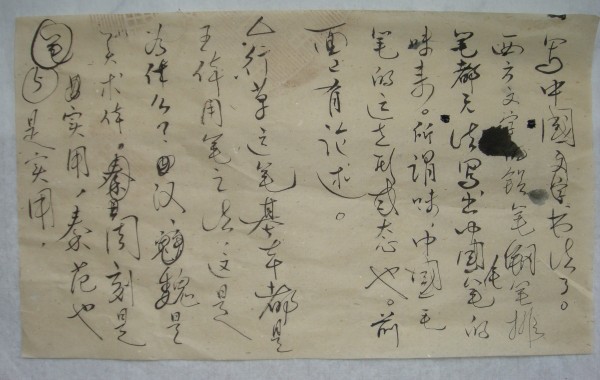 写中国文字书法了。
西方文字 铅笔钢笔排
笔都无法写出中国毛笔的
味来。所谓味，中国毛
笔的运走形或态也。前
面已有论述。
行草之笔基本都是
王体用笔之法，这是
为什么？由汉、魏是
美术体。秦、周刻是
由实用，秦范也
是实用，